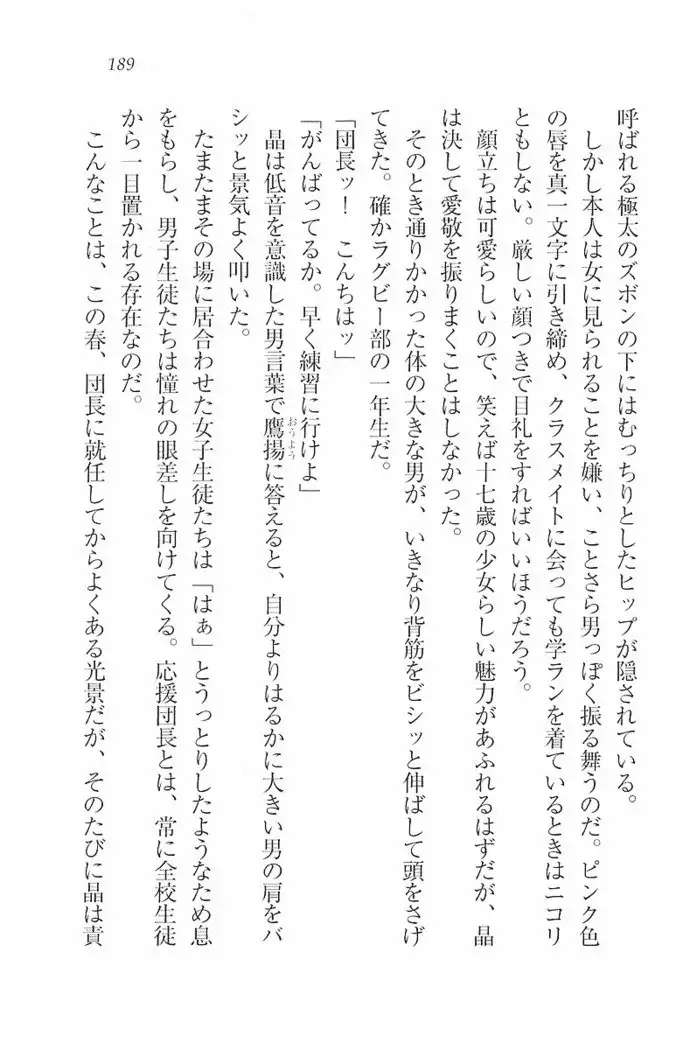 189
呼ばれる極太のズボンの下にはむっちりとしたヒップが隠されている。
しかし本人は女に見られることを嫌い、ことさら男っぽく振る舞うのだ。ピンク色
の唇を真一文字に引き締め、クラスメイトに会っても学ランを着ているときはニコリ
ともしない。厳しい顔つきで目礼をすればいいほうだろう。
顔立ちは可愛らしいので、笑えば十七歳の少女らしい魅力があふれるはずだが、晶
は決して愛敬を振りまくことはしなかった。
そのとき通りかかった体の大きな男が、いきなり背筋をビシッと伸ばして頭をさげ
てきた。確かラグビー部の一年生だ。
「団長ッ！　こんちはッ」
「がんばってるか。早く練習に行けよ」
晶は低音を意識した男言葉で鷹揚に答えると、自分よりはるかに大きい男の肩をバ
おうよう
シッと景気よく叩いた。
たまたまその場に居合わせた女子生徒たちは「はぁ」とうっとりしたようなため息
をもらし、男子生徒たちは憧れの眼差しを向けてくる。応援団長とは、常に全校生徒
から一目置かれる存在なのだ。
こんなことは、この春、団長に就任してからよくある光景だが、そのたびに晶は責